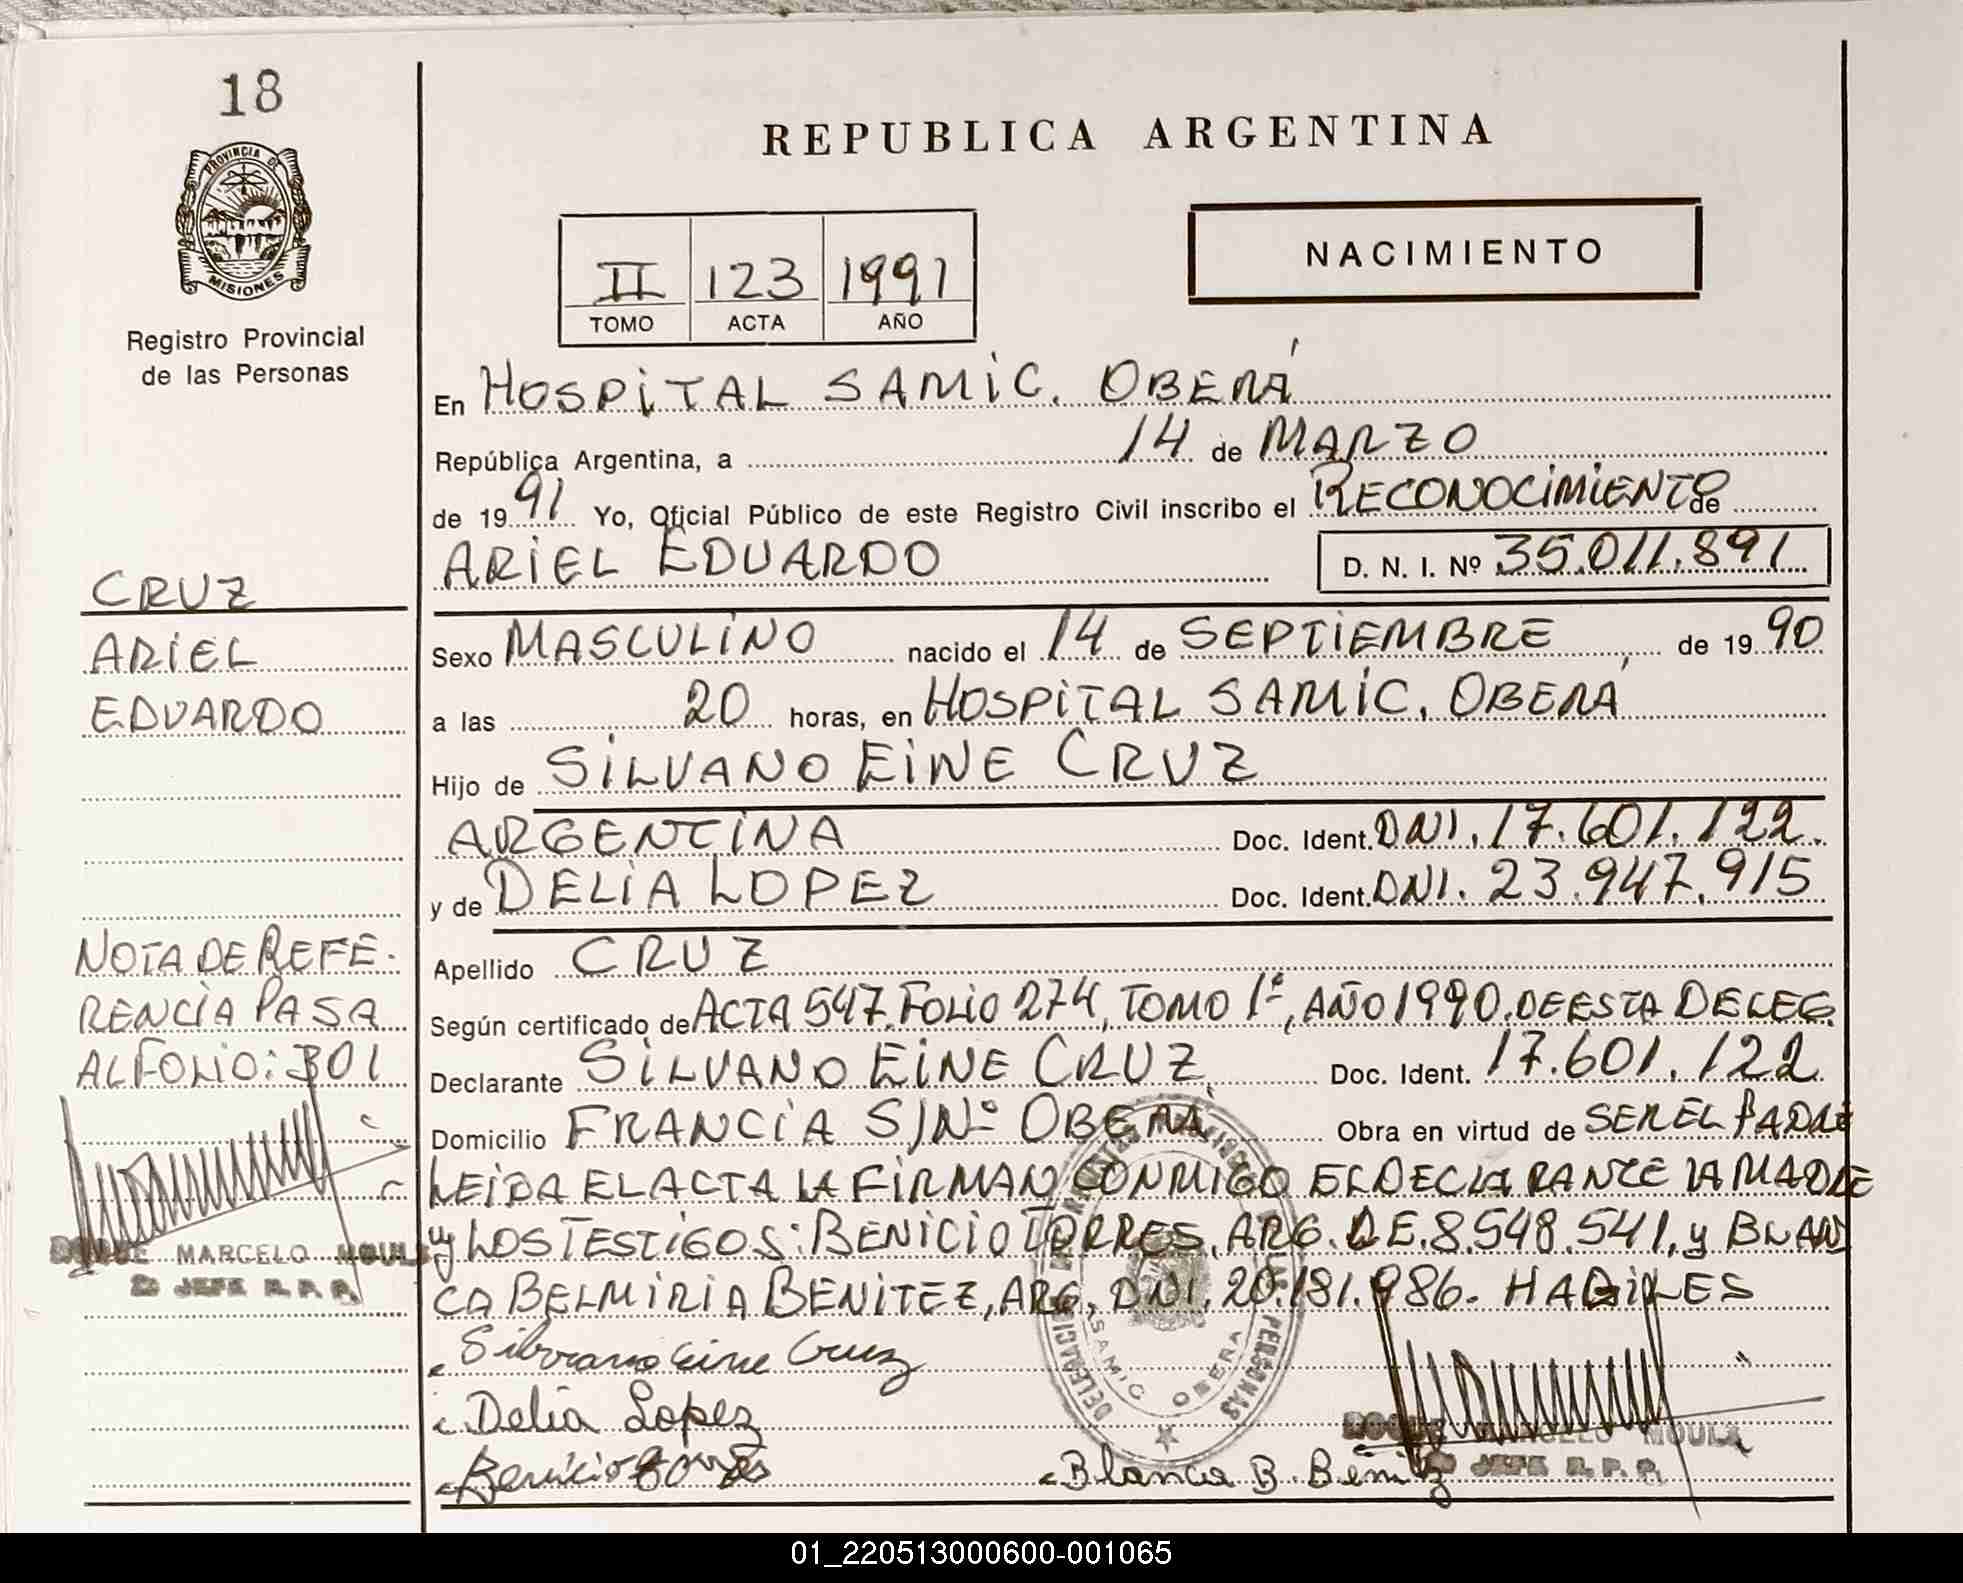 18
PROVINCIA DE
MISIONES
Registro Provincial
de las Personas
REPUBLICA ARGENTINA
NACIMIENTO
II 123 1991
TOMO ACTA AÑO
En HOSPITAL SAMIC. OBERÁ
República Argentina, a 14 de MARZO
de 19 91 Yo, Oficial Público de este Registro Civil inscribo el RECONOCIMIENTO de
ARIEL EDUARDO D. N. I. Nº 35.011.891
CRUZ
ARIEL
EDUARDO
Sexo MASCULINO nacido el 14 de SEPTIEMBRE de 19 90
a las 20 horas, en HOSPITAL SAMIC, OBERÁ
Hijo de SILVANO EINE CRUZ
ARGENTINA Doc. Ident. DNI. 17.601.122.
y de DELIA LOPEZ Doc. Ident. DNI. 23.947.915
Apellido CRUZ
Según certificado de ACTA 547, FOLIO 274, TOMO 1º, AÑO 1990. DE ESTA DELEG.
Declarante SILVANO EINE CRUZ Doc. Ident. 17.601.122
Domicilio FRANCIA S/Nº OBERÁ Obra en virtud de SER EL PADRE
LEIDA EL ACTA LA FIRMAN CONMIGO EL DECLARANTE LA MADRE
y LOS TESTIGOS: BENICIO TORRES, ARG. D.E. 8.548.541, y BLAN
CA BELMIRIA BENITEZ, ARG, DNI. 20.181.986. HABILES
NOTA DE REFE.
RENCIA PASA
AL FOLIO: 301
MARCELO
2º JEFE R.P.P.
Silvano Eine Cruz
Delia Lopez
Benicio Torres
Blanca B. Benitez
DELEGACION
PERSONAS
SAMIC OBERA
MARCELO MOULA
2º JEFE R.P.P.
01_220513000600-001065